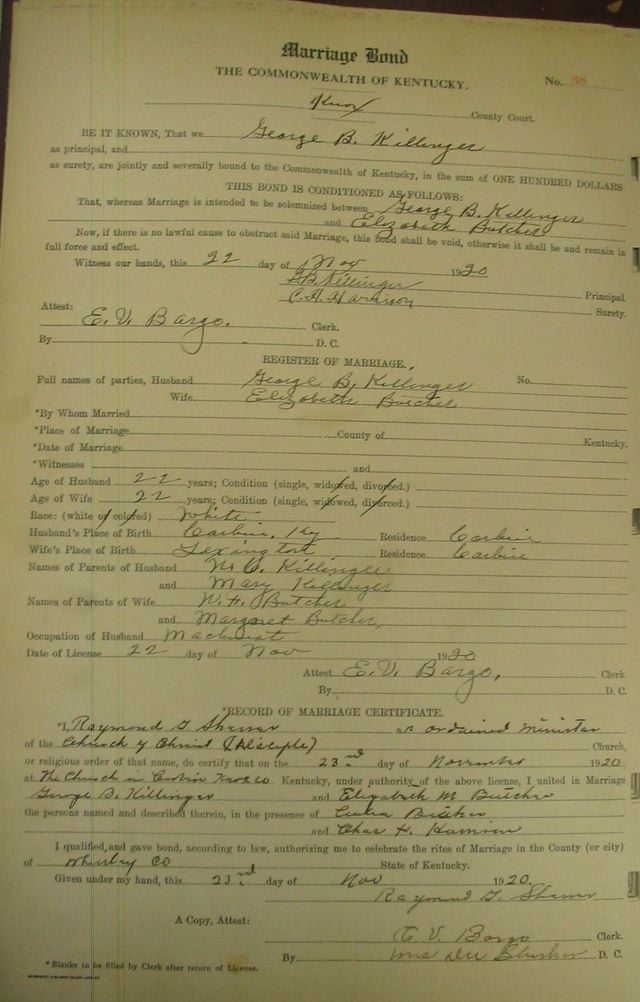 Marriage Bond
THE COMMONWEALTH OF KENTUCKY.
No. 38
Knox County Court.
BE IT KNOWN, That we George B. Killinger
as principal, and
as surety, are jointly and severally bound to the Commonwealth of Kentucky, in the sum of ONE HUNDRED DOLLARS
THIS BOND IS CONDITIONED AS FOLLOWS:
That, whereas Marriage is intended to be solemnized between George B. Killinger
and Elizabeth Butcher
Now, if there is no lawful cause to obstruct said Marriage, this bond shall be void, otherwise it shall be and remain in
full force and effect.
Witness our hands, this 22 day of Nov 1920
G.B. Killinger Principal.
C. H. Harrison Surety.
Attest:
E. V. Bargo. Clerk.
By D. C.
REGISTER OF MARRIAGE.
Full names of parties, Husband George B. Killinger No.
Wife Elizabeth Butcher
*By Whom Married
*Place of Marriage County of Kentucky.
*Date of Marriage
*Witnesses and
Age of Husband 22 years; Condition (single, widowed, divorced.)
Age of Wife 22 years; Condition (single, widowed, divorced.)
Race: (white or colored) White
Husband's Place of Birth Corbin, Ky Residence Corbin
Wife's Place of Birth Lexington Residence Corbin
Names of Parents of Husband Killinger
and Mary Killinger
Names of Parents of Wife W. H. Butcher
and Margaret Butcher,
Occupation of Husband Machinist
Date of License 22 day of Nov 1920
Attest E. V. Bargo, Clerk.
By D. C.
*RECORD OF MARRIAGE CERTIFICATE.
*I, Raymond G. an ordained minister
of the Church of Christ (Disciple) Church,
or religious order of that name, do certify that on the 23rd day of November 1920
at The Church in Corbin Knox Co Kentucky, under authority of the above license, I united in Marriage
George B. Killinger and Elizabeth M Butcher
the persons named and described therein, in the presence of Butcher
and Chas H. Harrison
I qualified, and gave bond, according to law, authorizing me to celebrate the rites of Marriage in the County (or city)
of Whitley Co State of Kentucky.
Given under my hand, this 23rd day of Nov 1920.
Raymond G.
A Copy, Attest:
E. V. Bargo Clerk.
By D. C.
* Blanks to be filled by Clerk after return of License.